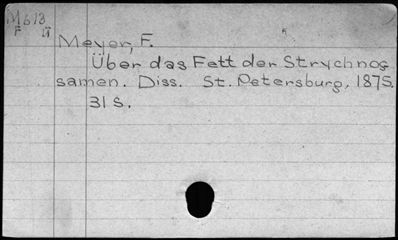 M613
F ü
Meyer, F.
Über das Fett der Strychnos
samen. Diss. St. Petersburg, 1875.
31 S.